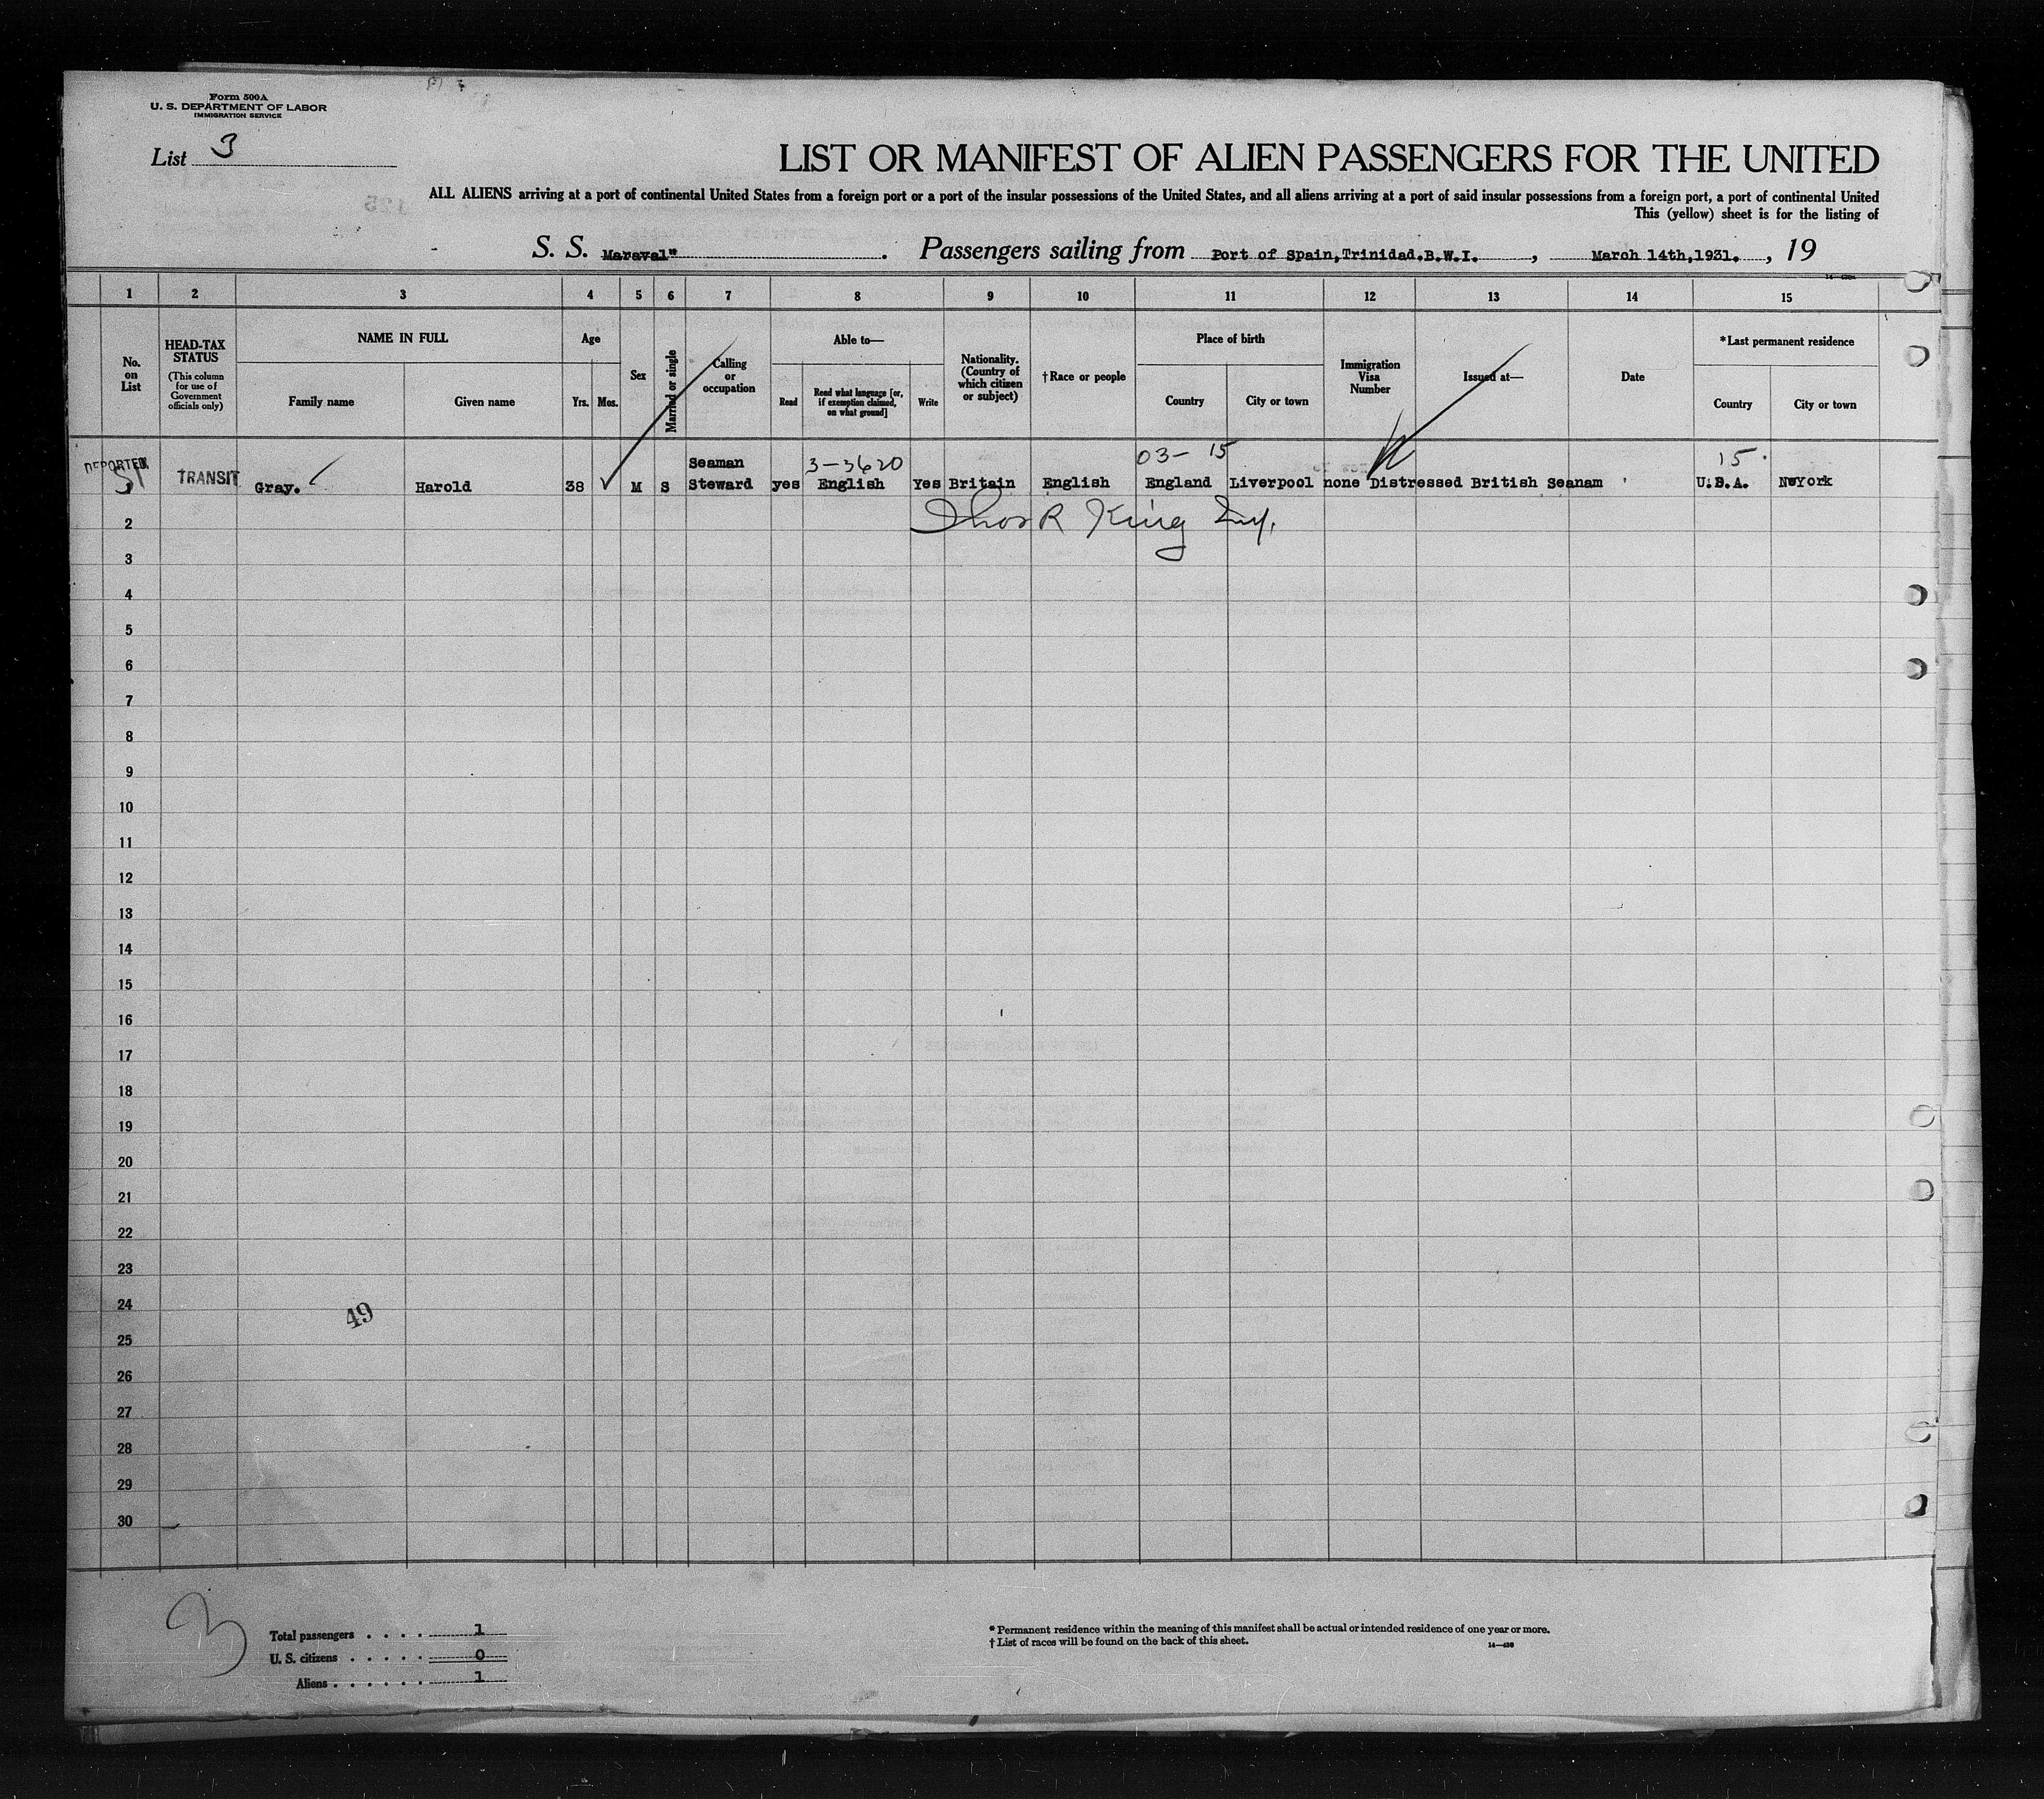 Form 500A
U. S. DEPARTMENT OF LABOR
IMMIGRATION SERVICE
List 3
LIST OR MANIFEST OF ALIEN PASSENGERS FOR THE UNITED
ALL ALIENS arriving at a port of continental United States from a foreign port or a port of the insular possessions of the United States, and all aliens arriving at a port of said insular possessions from a foreign port, a port of continental United
This (yellow) sheet is for the listing of
S. S. Maraval" . Passengers sailing from Port of Spain,Trinidad.B.W.I. , March 14th,1931. , 19
1 2 3 4 5 6 7 8 9 10 11 12 13 14 15
No. on List
HEAD-TAX STATUS (This column for use of Government officials only)
NAME IN FULL
Family name Given name
Age
Yrs. Mos.
Sex
Married or single
Calling or occupation
Able to—
Read Read what language [or, if exemption claimed, on what ground] Write
Nationality. (Country of which citizen or subject)
†Race or people
Place of birth
Country City or town
Immigration Visa Number
Issued at—
Date
*Last permanent residence
Country City or town
DEPORTED
Seaman 3-3620 03- 15 15
TRANSIT Gray. Harold 38 M S Steward yes English Yes Britain English England Liverpool none Distressed British Seanam U.S.A. NeYork
2 Thos R King
3
4
5
6
7
8
9
10
11
12
13
14
15
16
17
18
19
20
21
22
23
24
49
25
26
27
28
29
30
3
Total passengers . . . . 1
U. S. citizens . . . . . 0
Aliens . . . . . . 1
* Permanent residence within the meaning of this manifest shall be actual or intended residence of one year or more.
† List of races will be found on the back of this sheet.